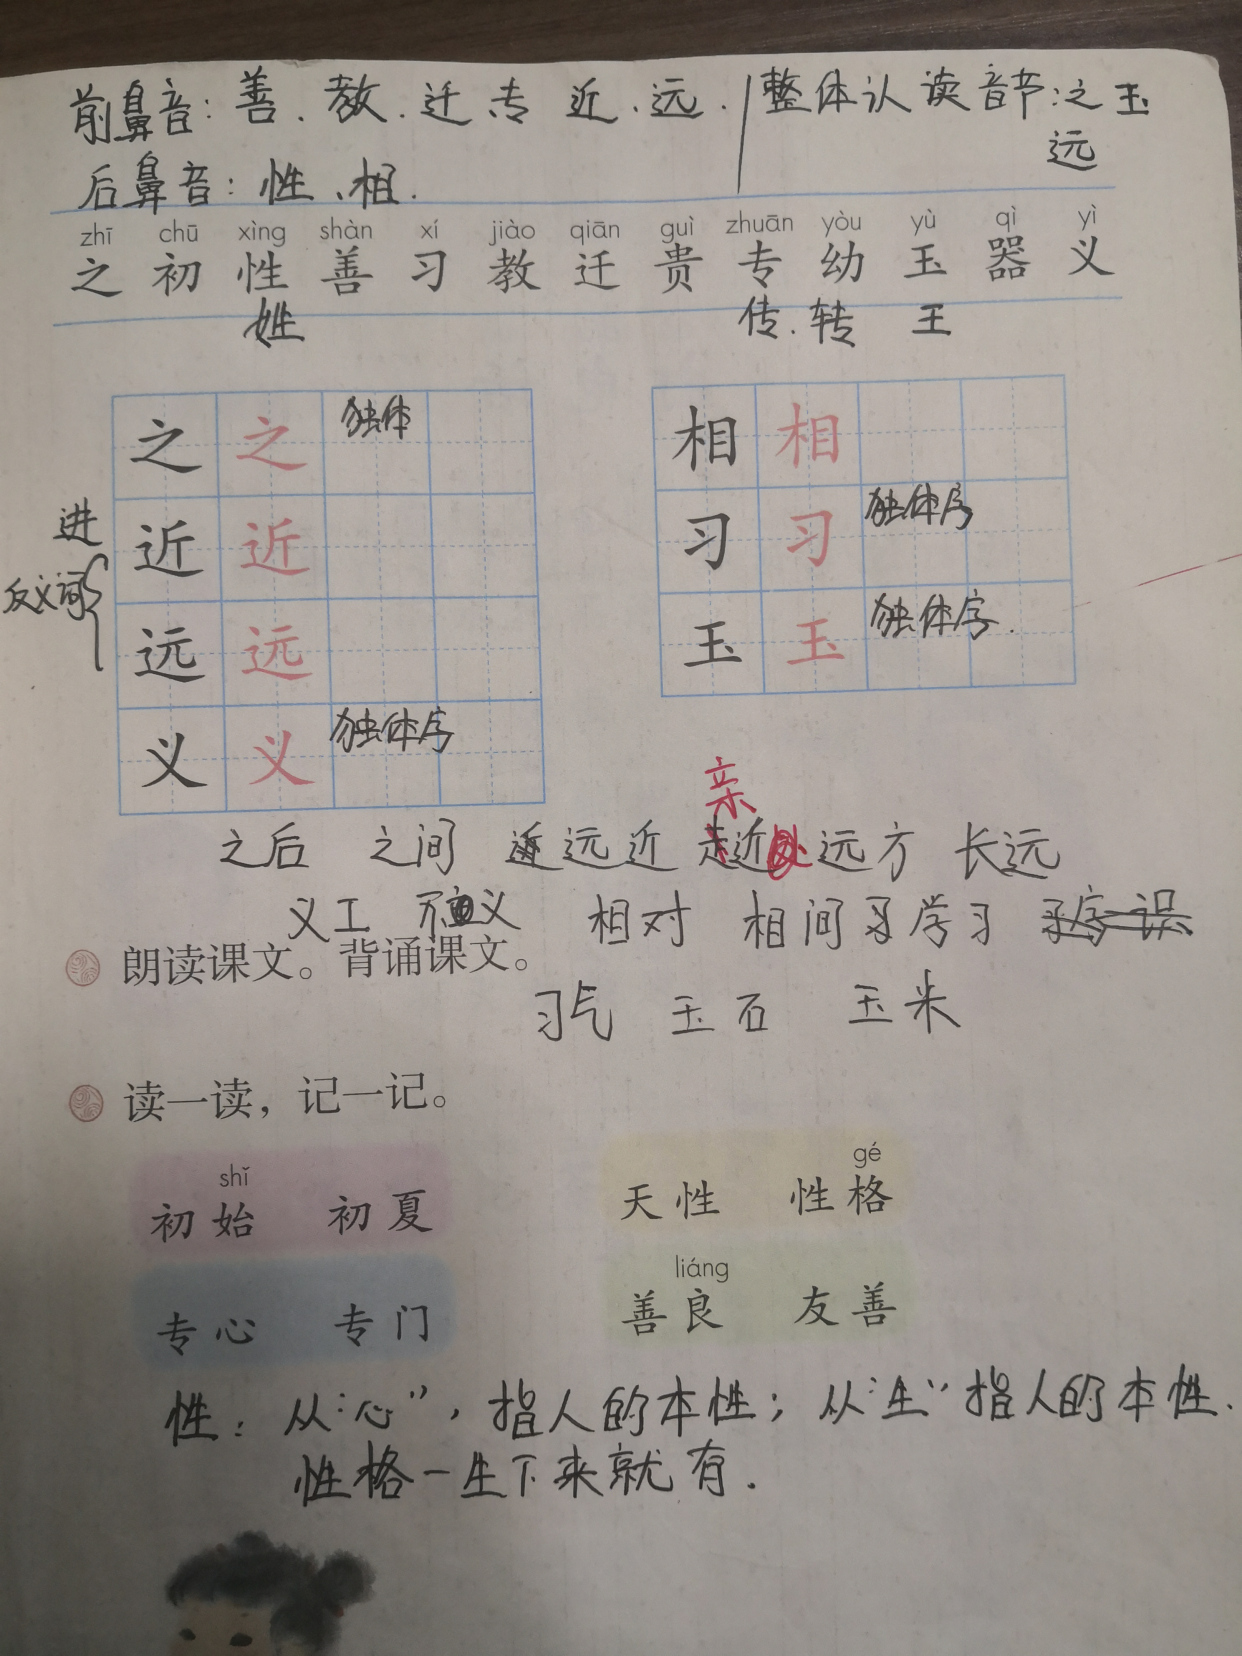 前鼻音：善、教．迁、专 近．远．整体认读音节：之玉
远
后鼻音：性、相．
zhī chū xìng shàn xí jiào qiān guì zhuān yòu yù qì yì
之 初 性 善 习 教 迁 贵 专 幼 玉 器 义
姓 传．转 王
之 之 独体
相 相
进
近 近
习 习 独体字
反义词
远 远
玉 玉 独体字．
义 义 独体字
亲
之后 之间 远近 近 远方 长远
义工 义 相对 相间 学习
朗读课文。背诵课文。
习气 玉石 玉米
读一读，记一记。
shǐ gé
初始 初夏 天性 性格
liáng
专心 专门 善良 友善
性：从“心”，指人的本性；从“生”指人的本性．
性格一生下来就有．